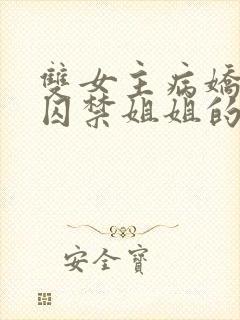 雙女主病嬌
囚禁姐姐的
安全寶